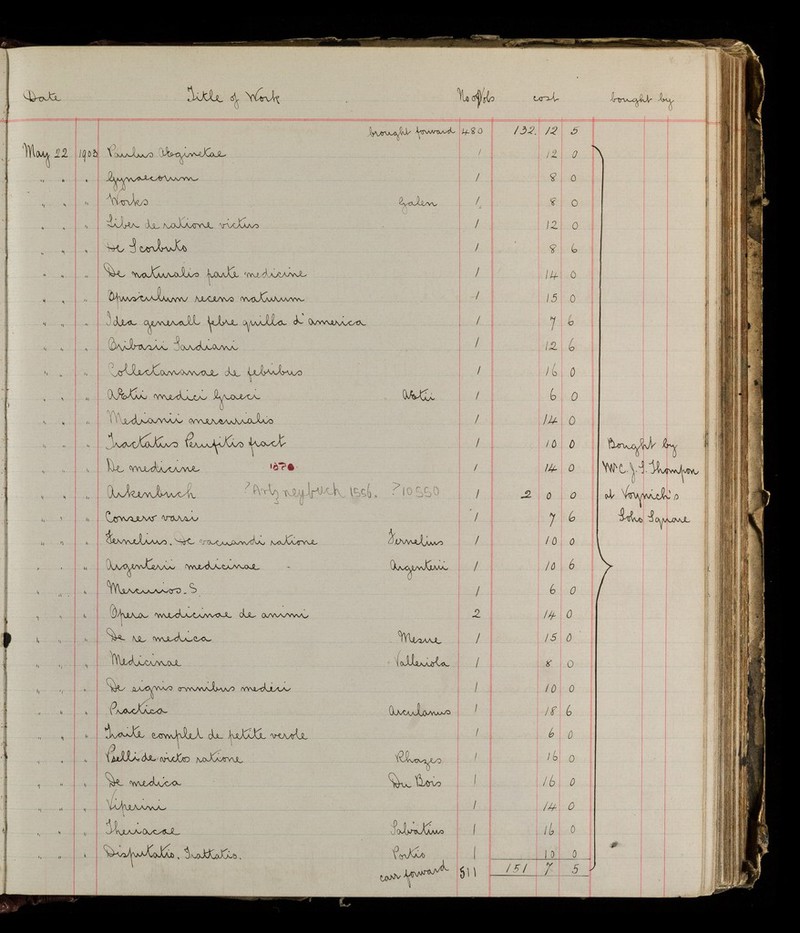 Date Title of Work No of Vols cost bought by
brought forward 480 132. 12 5
May 22 1903 Paulus Aeginetae 1 12 0
" " " Gynaecorum 1 8 0
" " " Works Galen 1 8 0
" " " Liber de ratione victus 1 12 0
" " " de Scorbuto 1 8 6
" " " De naturalis parte medicine 1 14 0
" " " Opusculum recens naturum 1 15 0
" " " Idea generall febre quilla d'america 1 7 6
" " " Oribasii Sardiani 1 12 6
" " " Collectananae de febribus 1 16 0
" " " Aetii medici Graeci Aetii 1 6 0
" " " Medianii mercurialis 1 14 0
" " " Tractatus fract 1 10 0
" " " De medicine 1870 1 14 0
" " " Arkenbuch ?Artzneybuch 1556. ?10550 1 2 0 0
" " " Conserv varsi 1 7 6
" " " Fernelius. De vacuandi ratione Fernelius 1 10 0
" " " Argenterii medicinae Argenterii 1 10 6
" " " Mercurios. S 1 6 0
" " " Opera medicinae de animi 2 14 0
" " " De re medica Mesue 1 15 0
" " " Medicinae Valleriola 1 8 0
" " " De signis omnibus medici 1 10 0
" " " Practica Arculanus 1 18 6
" " " Traite complet de petite verole 1 6 0
" " " de victos ratione Rhazes 1 16 0
" " " De medica Du Bois 1 16 0
" " " Viperini 1 14 0
" " " Theriacae Salvatius 1 16 0
" " " Disputatio. Trattatis. Portio 1 10 0
carr forward 511 151 7 5
Bought by
Mr C. J. S. Thompson
at Voynich's
Soho Square